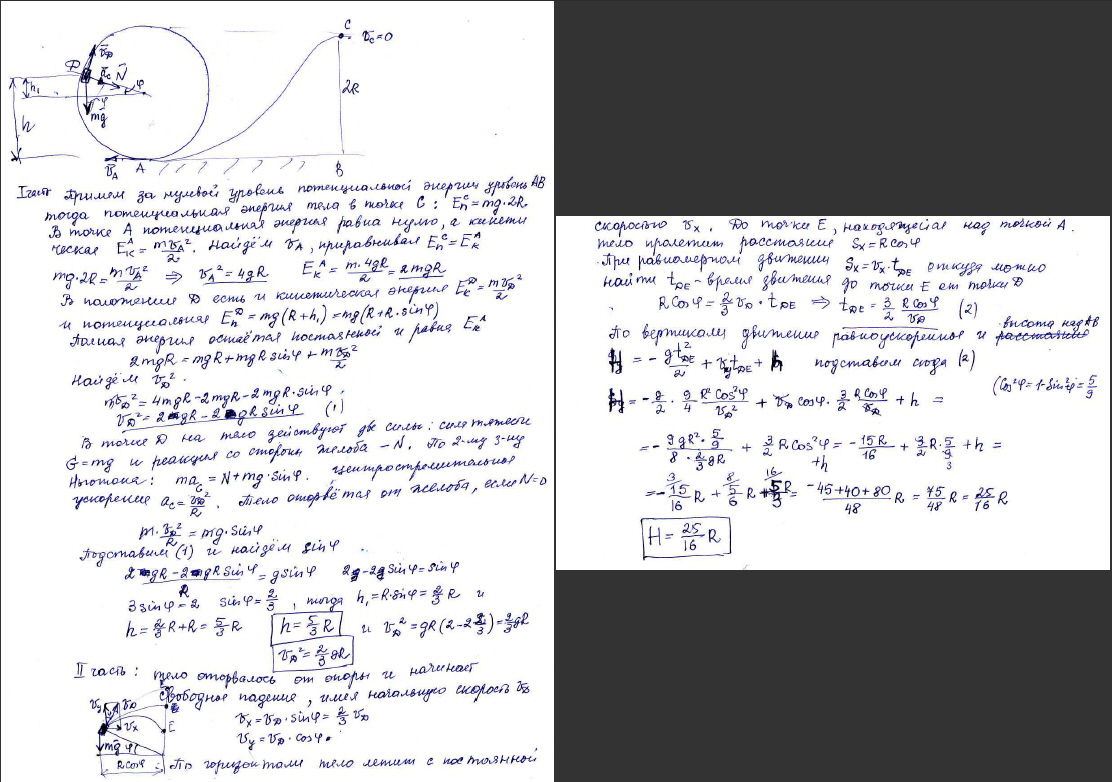 C
v_C=0
v_D
D
a_c
N
φ
h₁
φ
mg
2R
h
v_A
A
B
I часть Примем за нулевой уровень потенциальной энергии уровень AB
тогда потенциальная энергия тела в точке C: E_п^C = mg·2R
В точке A потенциальная энергия равна нулю, а кинети
ческая E_к^A = mv_A²/2. Найдём v_A, приравнивая E_п^C = E_к^A
mg·2R = mv_A²/2 ⇒ v_A² = 4gR E_к^A = m·4gR/2 = 2mgR
В положении D есть и кинетическая энергия E_к^D = mv_D²/2
и потенциальная E_п^D = mg(R+h₁) = mg(R+R·sinφ)
Полная энергия остаётся постоянной и равна E_к^A
2mgR = mgR + mgR sinφ + mv_D²/2
Найдём v_D².
mv_D² = 4mgR - 2mgR - 2mgR·sinφ.
v_D² = 2gR - 2gR sinφ (1)
В точке D на тело действуют две силы: сила тяжести
G = mg и реакция со стороны желоба – N. По 2-му з-ну
Ньютона: ma_c = N + mg·sinφ. центростремительное
ускорение a_c = v_D²/R. Тело оторвётся от желоба, если N=0
m·v_D²/R = mg·sinφ
Подставим (1) и найдём sinφ
2gR - 2gR sinφ/R = g sinφ 2g - 2g sinφ = sinφ
3 sinφ = 2 sinφ = 2/3, тогда h₁ = R·sinφ = 2/3 R и
h = 2/3 R + R = 5/3 R h = 5/3 R и v_D² = gR(2 - 2·2/3) = 2/3 gR
v_D² = 2/3 gR
II часть: тело оторвалось от опоры и начинает
свободное падение, имея начальную скорость v_D
v_y
v_D
v_x
E
mg
φ
R cosφ
v_x = v_D·sinφ = 2/3 v_D
v_y = v_D·cosφ.
По горизонтали тело летит с постоянной
скоростью v_x. До точки E, находящейся над точкой A.
тело пролетит расстояние S_x = R cosφ
При равномерном движении S_x = v_x·t_DE откуда можно
найти t_DE – время движения до точки E от точки D
R cosφ = 2/3 v_D·t_DE ⇒ t_DE = 3/2 R cosφ/v_D (2)
По вертикали движение равноускоренное и высота над AB
H = - g t_DE²/2 + v_y t_DE + h подставим сюда (2)
(cos²φ = 1 - sin²φ = 5/9)
H = - g/2 · 9/4 R² cos²φ/v_D² + v_D cosφ · 3/2 R cosφ/v_D + h =
= - 9gR²·5/9 / 8·2/3 gR + 3/2 R cos²φ + h = - 15R/16 + 3/2 R·5/9 + h =
= - 15/16 R + 5/6 R + 5R/3 = -45+40+80/48 R = 75/48 R = 25/16 R
H = 25/16 R